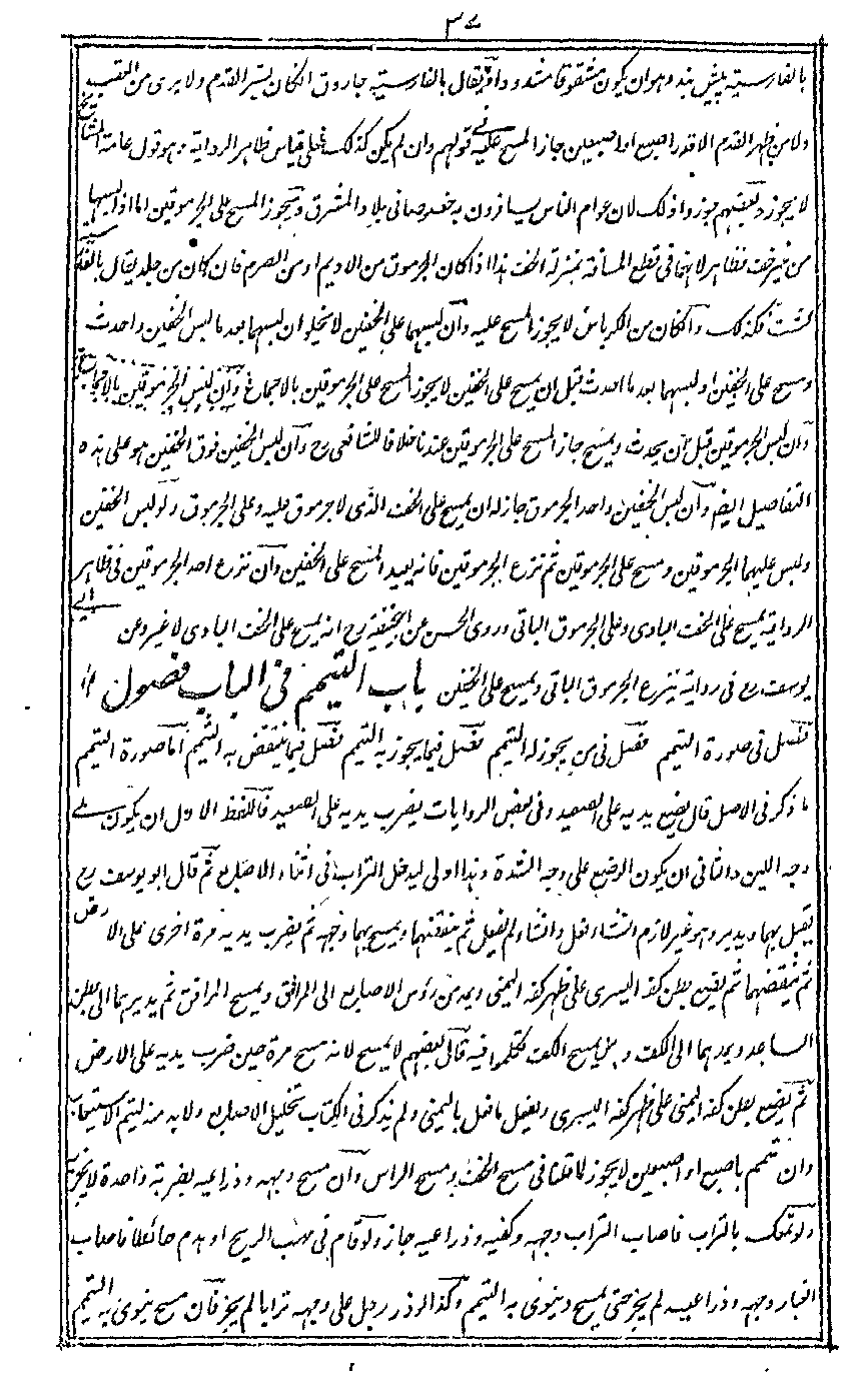 ٣٧
بالفارسية پيش بند وهو ان يكون مشقوقا مشدودا ويقال بالفارسية جاروق ان كان يستر القدم ولا يرى من العقب
ولا من ظهر القدم الا قدر اصبع او اصبعين جاز المسح عليه في قولهم وان لم يكن كذلك فعلى قياس ظاهر الرواية وهو قول عامة المشائخ
لا يجوز وبعضهم جوزوا ذلك لان عوام الناس يسافرون به خصوصا في بلاد المشرق ويجوز المسح على الجرموقين اما اذا لبسهما
من غير خف فظاهر لانهما في قطع المسافة بمنزلة الخف هذا اذا كان الجرموق من الاديم او من الصرم فان كان من جلد يقال بالفارسية
فكذلك وان كان من الكرباس لا يجوز المسح عليه وان لبسهما على الخفين لا يخلو ان لبسهما بعد ما لبس الخفين واحدث
ومسح على الخفين او لبسهما بعد ما احدث قبل ان يمسح على الخفين لا يجوز المسح على الجرموقين بالاجماع وان لبس الجرموقين
وان لبس الجرموقين قبل ان يحدث ويمسح جاز المسح على الجرموقين عندنا خلافا للشافعي رح وان لبس الخفين فوق الخفين هو على هذه
التفاصيل ايضا وان لبس الخفين واحد الجرموق جاز له ان يمسح على الخف الذي لا جرموق عليه وعلى الجرموق ولو لبس الخفين
ولبس عليهما الجرموقين ومسح على الجرموقين ثم نزع الجرموقين فانه يعيد المسح على الخفين وان نزع احد الجرموقين في ظاهر
الرواية يمسح على الخف البادي وعلى الجرموق الباقي وروى الحسن عن ابي حنيفة رح انه يمسح على الخف البادي لا غير وعن ابي
يوسف رح في رواية ينزع الجرموق الباقي ويمسح على الخفين باب التيمم في الباب فصول
فصل في صورة التيمم فصل في من يجوز له التيمم فصل فيما يجوز به التيمم فصل فيما ينتقض به التيمم اما صورة التيمم
ما ذكر في الاصل قال يضع يديه على الصعيد وفي بعض الروايات يضرب يديه على الصعيد فاللفظ الاول ان يكون على
وجه اللين والثاني ان يكون الوضع على وجه الشدة وهذا اولى ليدخل التراب في اثناء الاصابع ثم قال ابو يوسف رح
يقبل بهما ويدبر وهو غير لازم ان شاء فعل وان شاء لم يفعل ثم ينفضهما ويمسح بهما وجهه ثم يضرب يديه مرة اخرى على الارض
ثم ينفضهما ثم يضع بطن كفه اليسرى على ظهر كفه اليمنى ويمد من رؤس الاصابع الى المرافق ويمسح المرافق ثم يديرهما الى بطن
الساعد ويمدهما الى الكف وهل يمسح الكف تكلموا فيه قال بعضهم لا يمسح لانه مسح مرة حين ضرب يديه على الارض
ثم يضع بطن كفه اليمنى على ظهر كفه اليسرى ويفعل ما فعل باليمنى ولم يذكر في الكتاب تخليل الاصابع ولا بد منه ليتم الاستيعاب
وان تيمم باصبع او اصبعين لا يجوز كما قلنا في مسح الخف ومسح الراس وان مسح وجهه وذراعيه بضربة واحدة لا يجوز
ولو تمعك بالتراب فاصاب التراب وجهه وكفيه وذراعيه جاز ولو قام في مهب الريح او هدم حائطا فاصاب
الغبار وجهه وذراعيه لم يجز حتى يمسح وينوي به التيمم وكذا لو ذر رجل على وجهه ترابا لم يجز فان مسح ينوي به التيمم